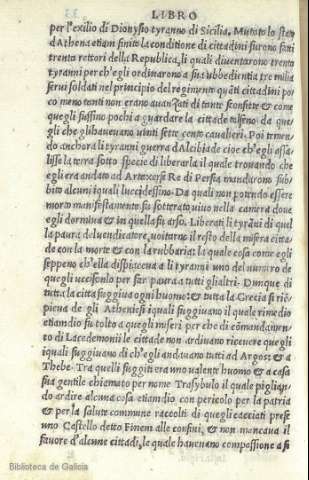 LIBRO
per l'exilio di Dionysio tyranno di Sicilia. Mutato lo stato
d'Athena etiam finito la conditione di cittadini furono fatti
trenta rettori della Republica, li quali diuentarono trenta
tyranni perch'egli ordinarono a sua ubbedientia tre milia
serui soldati nel principio del regimento quāti cittadini po
co meno tanti non erano auanZati di tante sconfitte & come
quegli fussino pochi a guardare la cittade tolseno de que
gli che gli haueuano uinti sette cento cauallieri. Poi temen
do anchora li tyranni guerra d'Alcibiade cioe ch'egli assa
lisse la terra sotto specie di liberarla il quale trouando che
egli era andato ad Artexerse Re di Persia mandarono sub/
bito alcuni iquali l'uccidessino. Da quali non potendo essere
morto manifestamente fu sotterato uiuo nella camera doue
egli dormiua & in quella fu arso. Liberati li tyrāni di quel
la paura del uendicatore, uoitarno il resto della misera citta
de con la morte & con la rubbaria: la quale cosa come egli
seppeno ch'ella dispiaceua a li tyranni uno del numero de
quegli uccisonlo per far paura a tutti gli altri. Dunque di
tutta la citta fuggiua ogni huomo: & tutta la Grecia si riē
pieua de gli Atheniesi iquali fuggiuano il quale rimedio
etiamdio fu tolto a quegli miseri per che di cōmandamen
to di Lacedemonii le cittade non ardiuano riceuere quegli
iquali fuggiuano di ch'egli andauano tutti ad Argos: & a
Thebe. Tra quelli fuggiti era uno ualente huomo & a casa
sua gentile chiamato per nome Trasybulo il quale piglian
do ardire alcuna cosa etiamdio, con pericolo per la patria
& per la salute commune raccolti di quegli cacciati prese
uno Castello detto Fineni alle confini, & non mancaua il
fauore d'alcune cittadi, le quale haueuano compassione a si
Biblioteca de Galicia